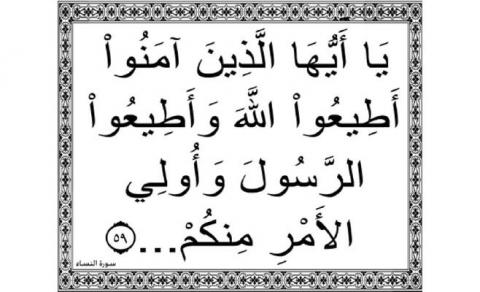 يَا أَيُّهَا الَّذِينَ آمَنُواْ
أَطِيعُواْ اللَّهَ وَأَطِيعُواْ
الرَّسُولَ وَأُولِي
الأَمْرِ مِنكُمْ... ٥٩
سورة النساء